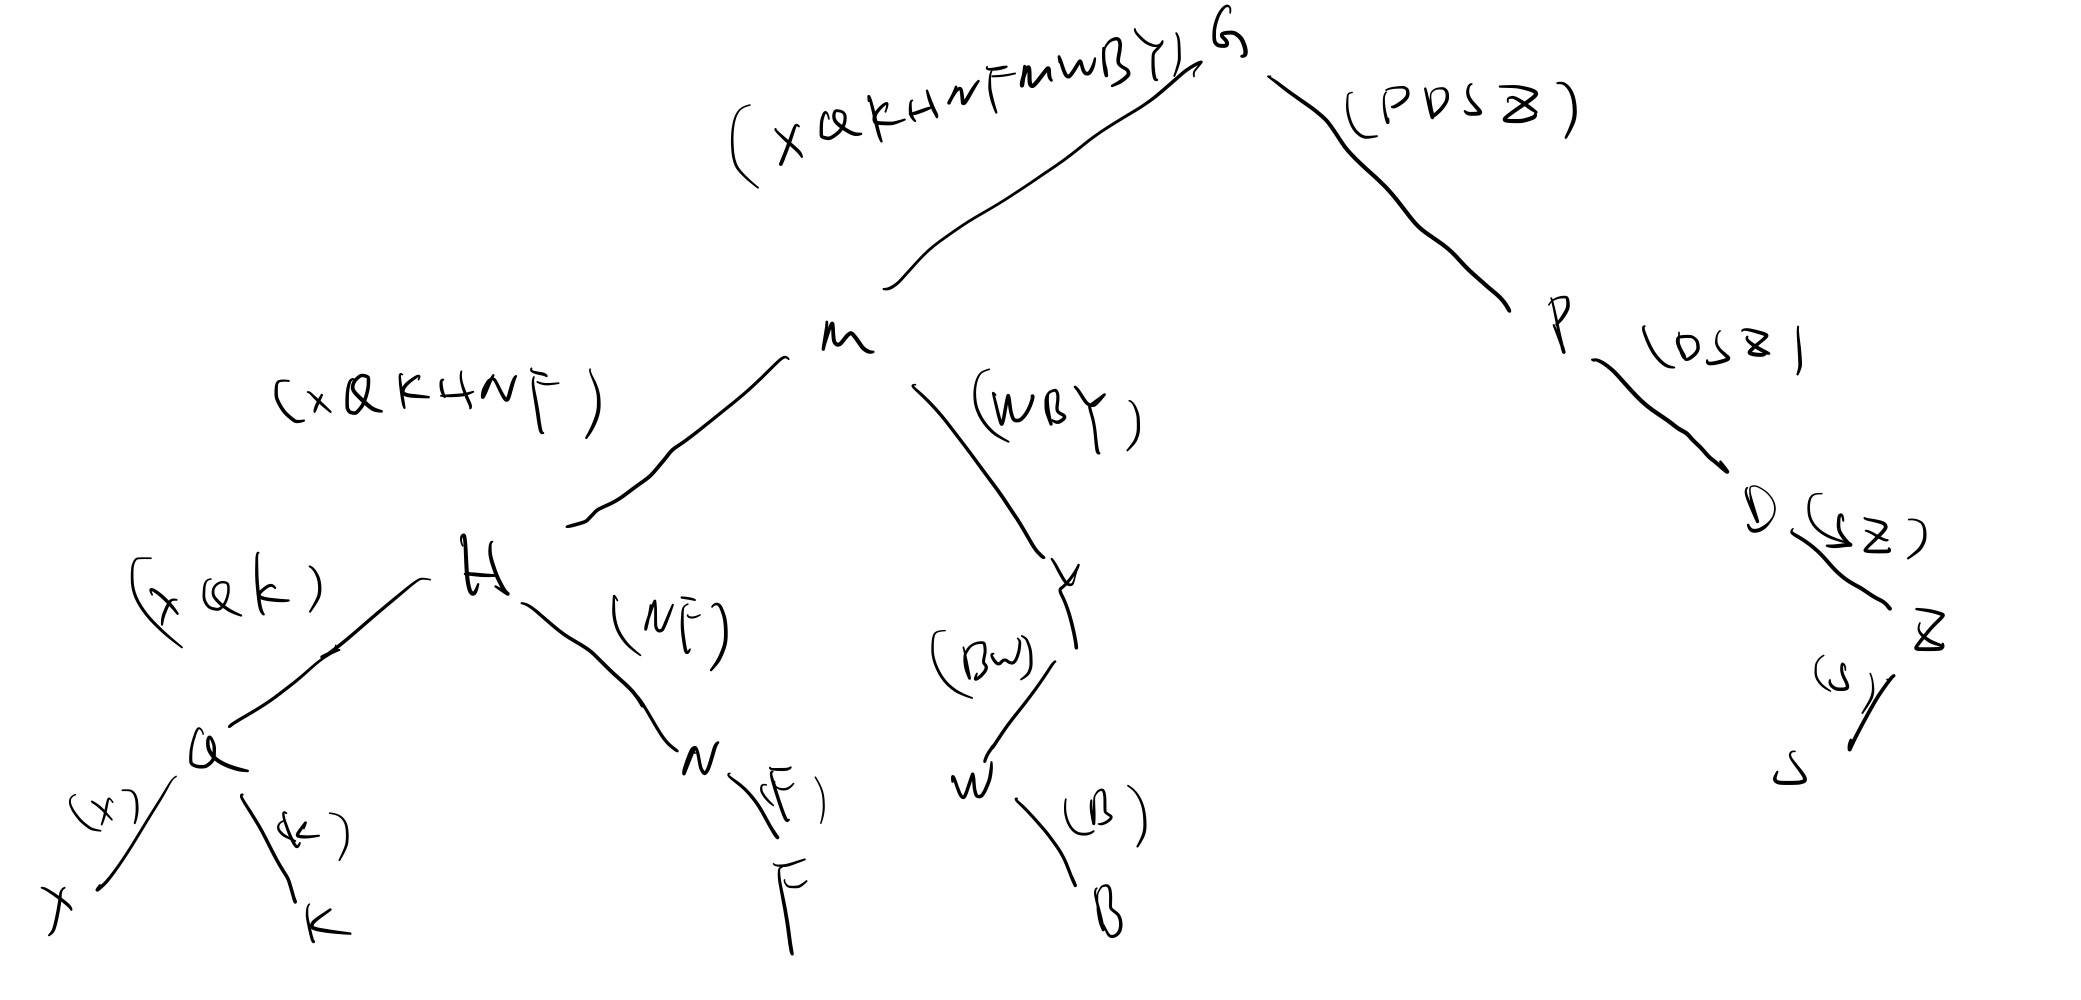 G
(XQKHNFMWBY)
(PDSZ)
M
P
(DSZ)
(XQKHNF)
(WBY)
D
(SZ)
H
Y
Z
(XQK)
(NF)
(BW)
(S)
Q
N
W
S
(X)
(K)
(F)
(B)
X
K
F
B